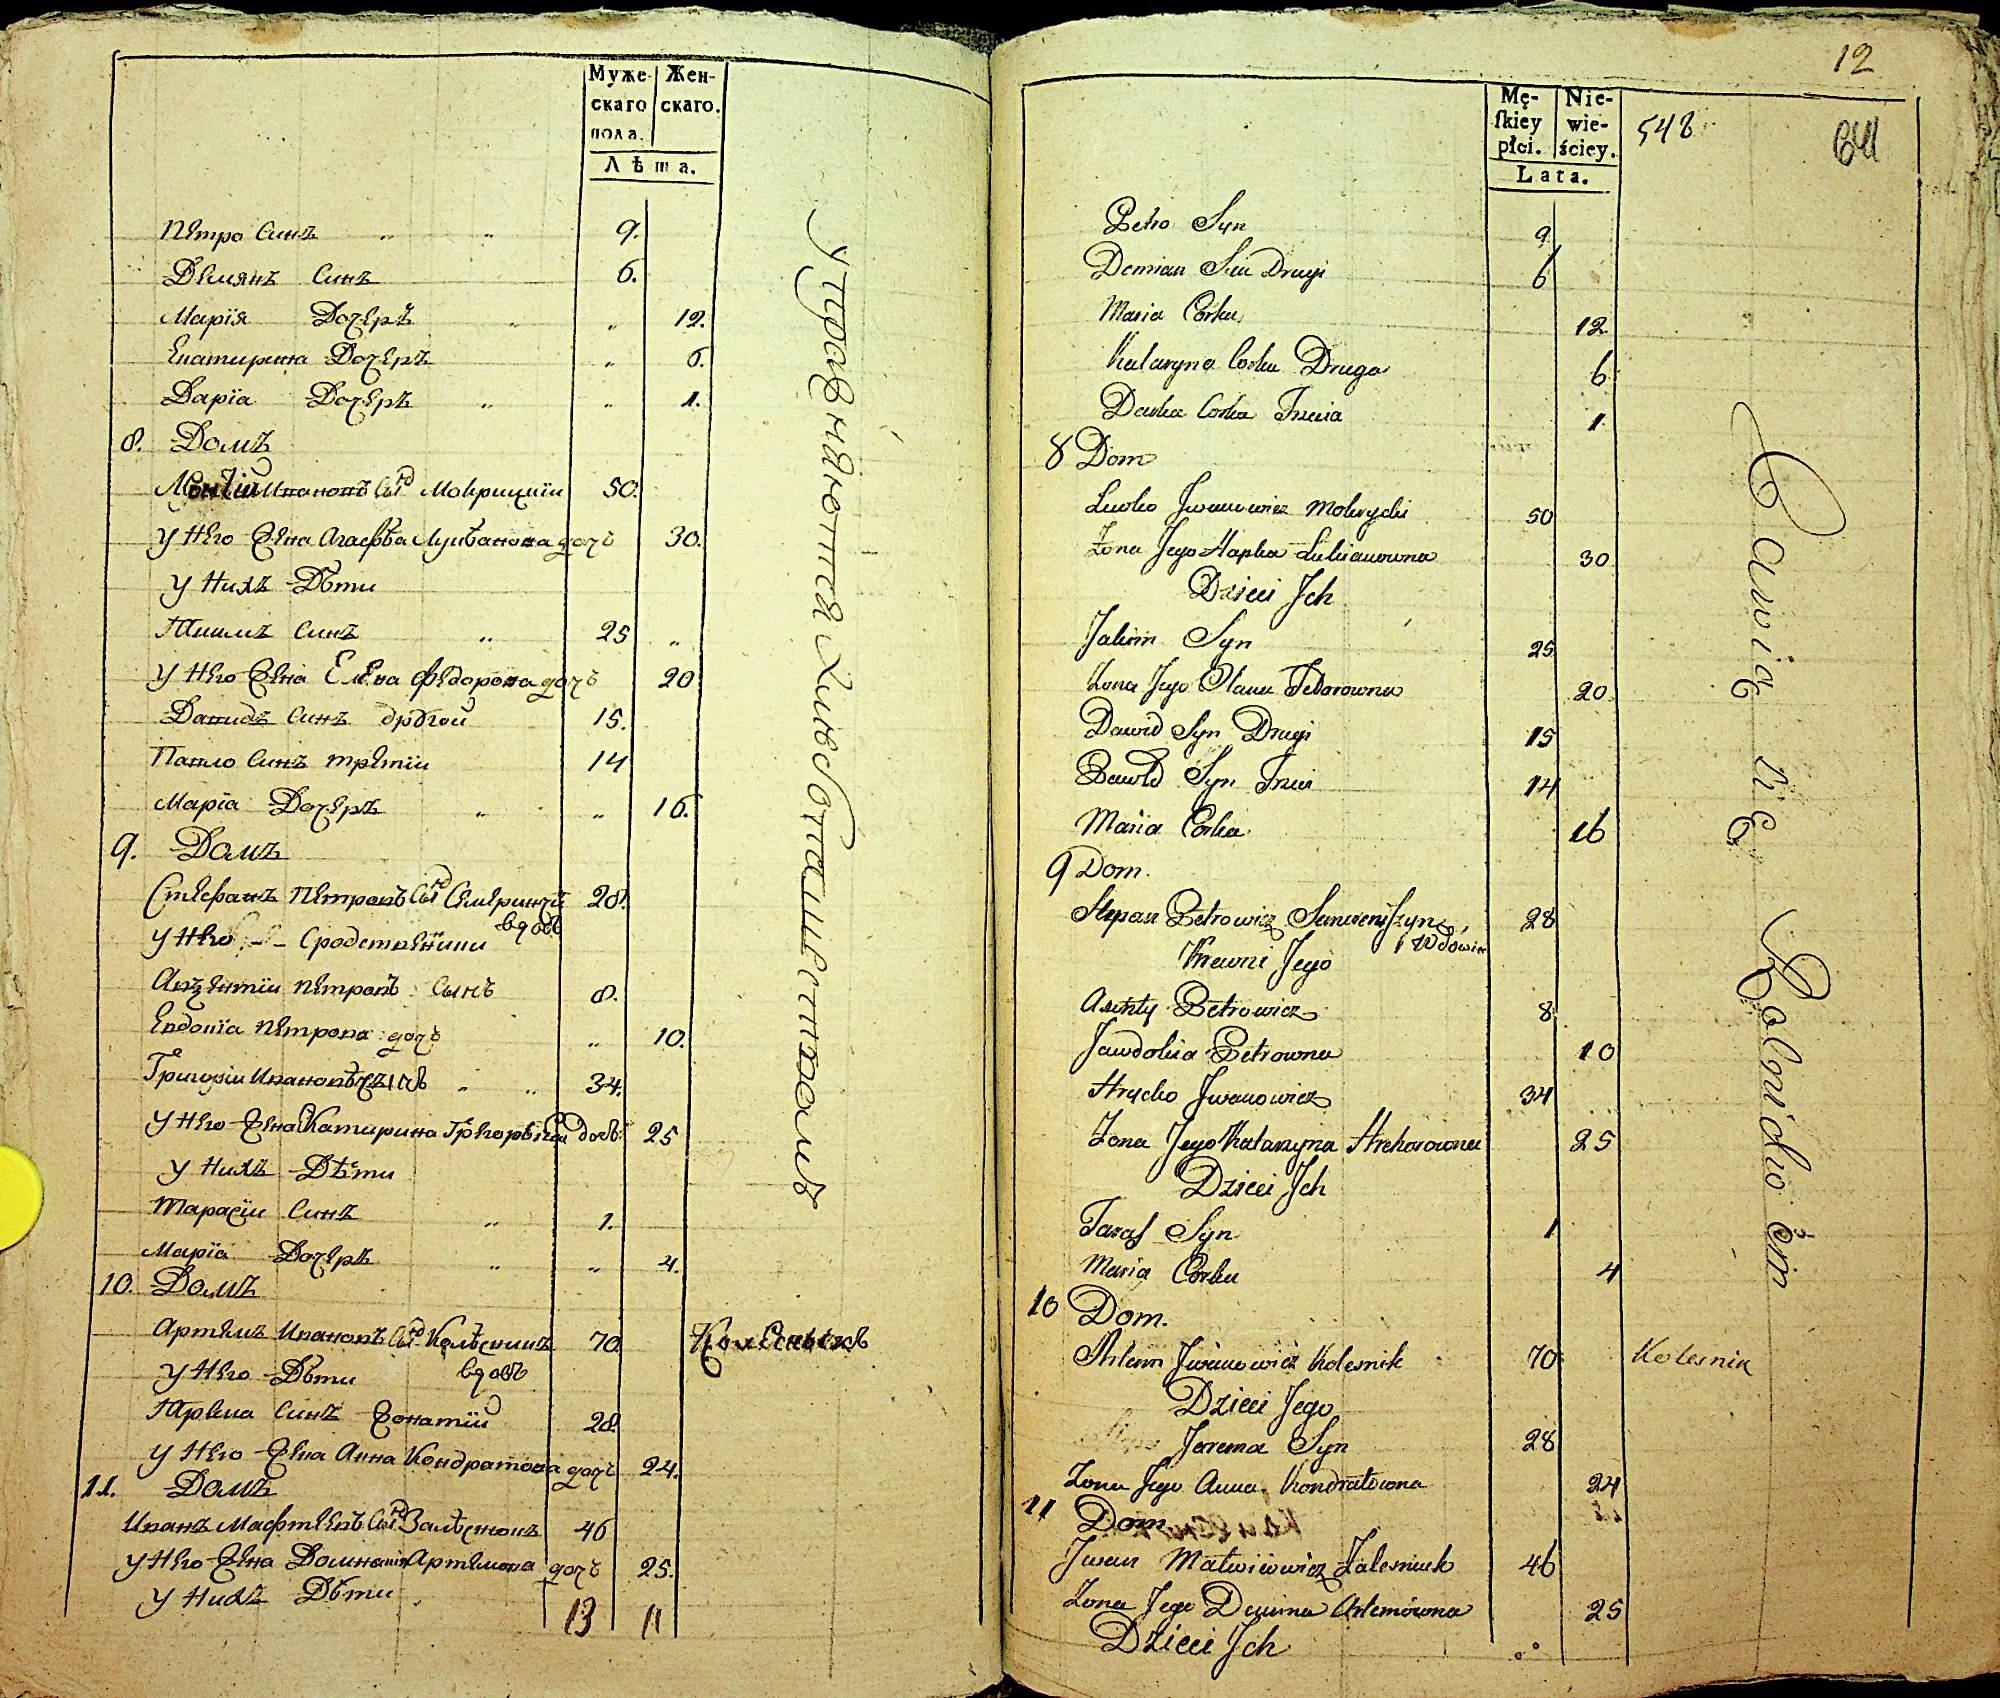 Муже-
скаго
пола.
Жен-
скаго.
Лѣта.
Петро Синъ " " 9.
Демянъ Синъ 6.
Марїя Дочеръ " " 12.
Екатирина Дочеръ " 6.
Дарїа Дочеръ " " 1.
8. Домъ
Ивановъ Сынъ Мокрицкїи 50.
у Него Жена Агаефѣа Лукѣанова дочъ 30.
у Нихъ Дѣти
Якимъ Синъ " 25 "
у Него Жена Елена Федорова дочъ 20
Давидъ Синъ другой 15.
Павло Синъ третїи 14
Марїа Дочеръ " " 16.
9. Домъ
Стефанъ Петровъ Сынъ 28.
вдовъ
у Него Сродственїики
Авѣентїи Петровъ Сынъ 8.
Евдокїа Петрова дочъ " 10.
Григорїи Ивановъ " " 34.
у Него Жена Катирина 25
у Нихъ Дѣти
Тарасїи Синъ " 1.
Марїа Дочеръ " " 4.
10. Домъ
Артемъ Ивановъ Сынъ Колѣсникъ 70. Колесникъ
у Него Дѣти вдовъ
Ярема Синъ Жонатїи 28.
у Него Жена Анна Кондратова дочъ 24.
11. Домъ
Иванъ Сынъ 46
у Него Жена Артемова дочъ 25.
у Нихъ Дѣти
13 11
управнѧютсѧ хлѣбопашествомъ
12
Mę-
ſkiey
płci.
Nie-
wie-
ściey.
Lata.
548
641
Petro Syn 9
Demian Sin Drugi 6
Maria Corka 12
Kataryna Corka Druga 6
Darka Corka Trzecia 1
8 Dom
Lewko Jwanowicz Mokrycki 50
Żona Jego Hapka Lukianowna 30
Dzieci Jch
Jakim Syn 25
Żona Jego Olana Fedorowna 20
Dawid Syn Drugi 15
Pawło Syn Trzeci 14
Maria Corka 16
9 Dom.
Stepan Petrowicz 28
Wdowiec
Krewni Jego
Petrowicz 8
Jawdokia Petrowna 10
Hrycko Jwanowicz 34
Żona Jego Katarzyna Hrehorowna 25
Dzieci Jch
Taraſ Syn 1
Maria Corka 4
10 Dom.
Artem Jwanowicz Kolesnik 70 Kolesnik
Dzieci Jego
Jerema Syn 28
Żona Jego Anna Kondratowna 24
11 Dom
Jwan Matwiiowicz Zalesniuk 46
Żona Jego Artemowna 25
Dzieci Jch
Bawią się Rolnictwem